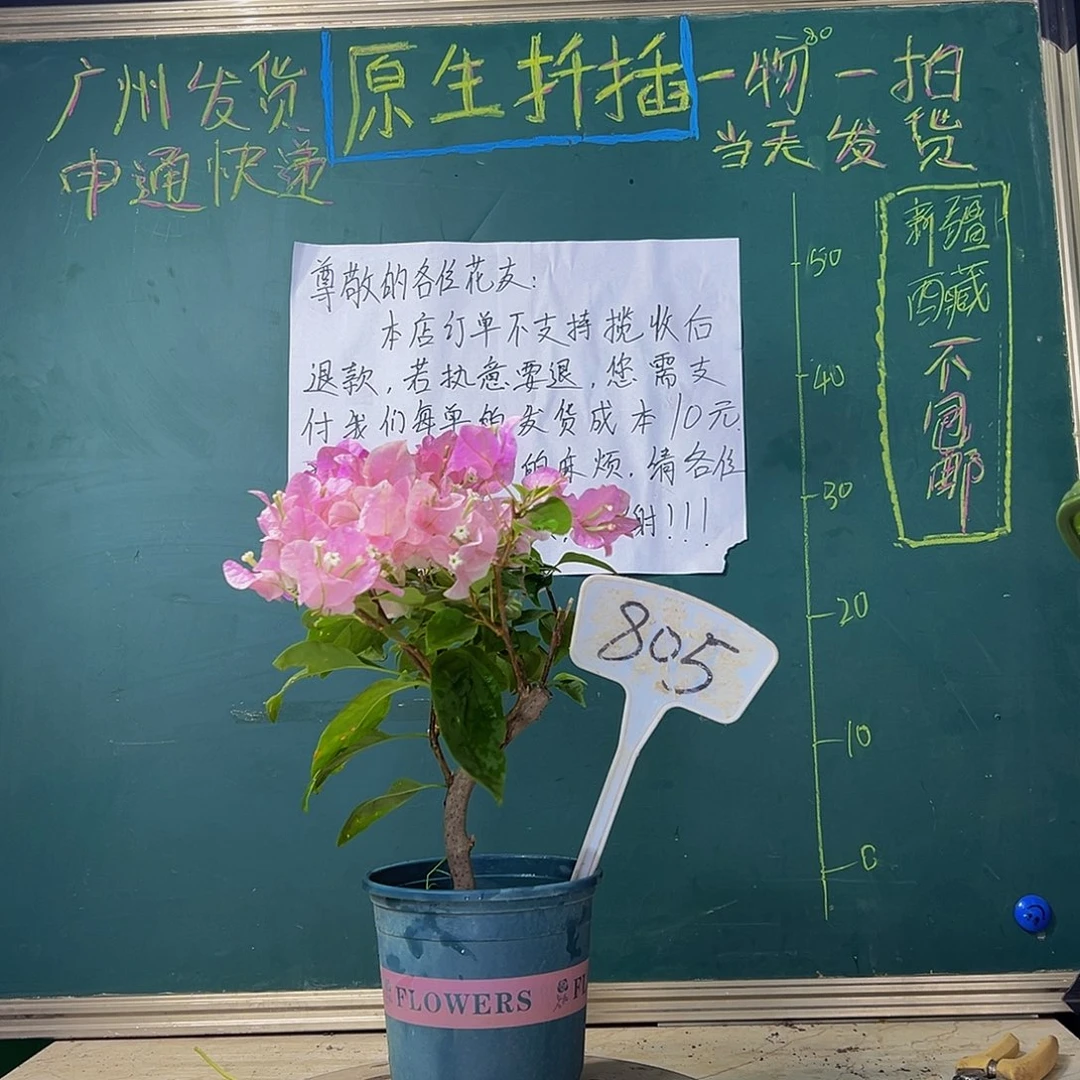 广州发货
申通快递
原生扦插
一物一拍
80
当天发货
新疆
西藏
不包邮
尊敬的各位花友：
本店订单不支持揽收后
退款，若执意要退，您需支
付我们每单的发货成本10元
的麻烦，请各位
谢！！！
50
40
30
20
10
0
805
FLOWERS
FL